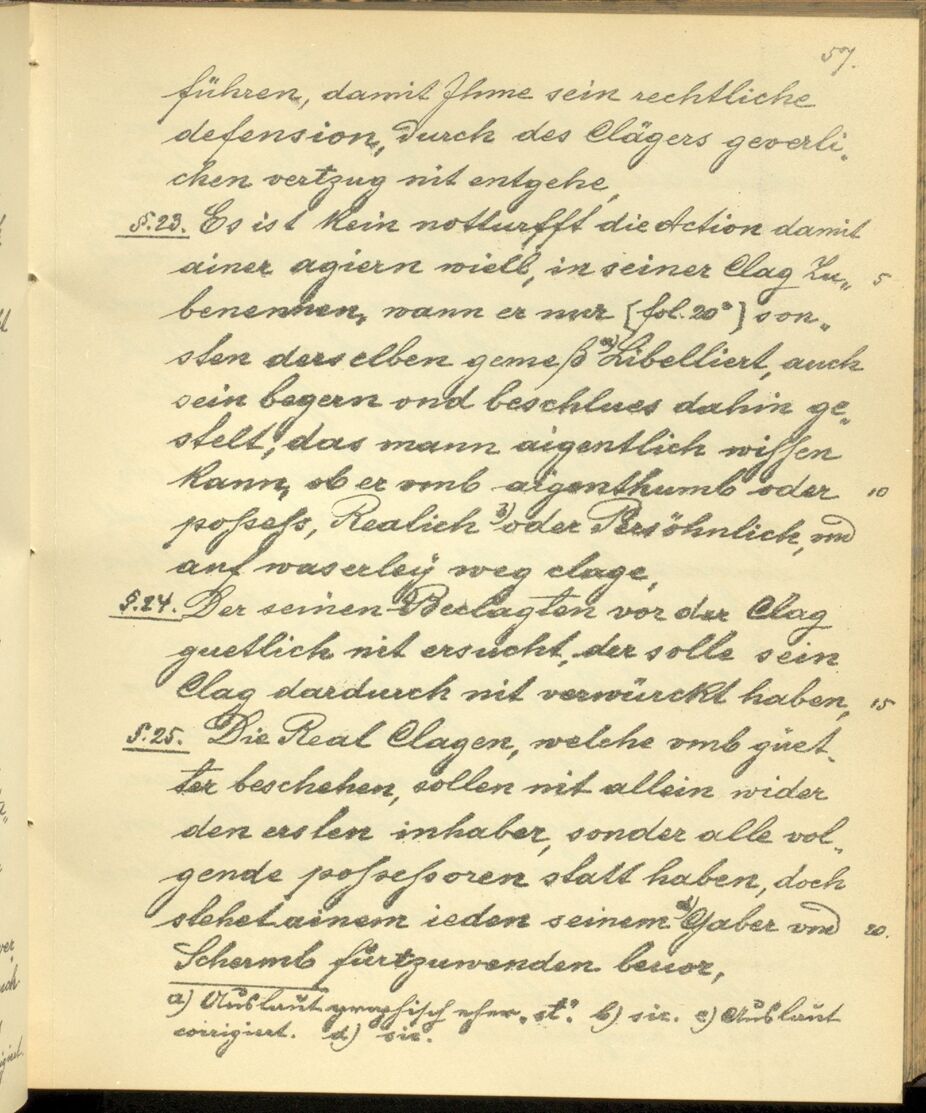 57.
führen, damit Jhme sein rechtliche
defension, durch des Clägers geverli„
chen vertzug nit entgehe,
§.23. Es ist kein notturfft die Action damit
ainer agiern wiell, in seiner Clag zu„ 5
benennen, wann er nur [fol. 20ª] son„
sten derselben gemeß a) Libelliert, auch
sein begern vnd beschlues dahin ge„
stelt, das mann aigentlich wissen
kann, ob er vmb aigenthumb oder 10
possess, Realich b) oder Persöhnlich, vnd
auf waserleÿ weg clage,
§.24. Der seinen Beclagten vor der Clag
guetlich nit ersucht, der solle sein
Clag dardurch nit verwürckt haben, 15
§.25. Die Real Clagen, welche vmb güet„
ter beschehen, sollen nit allein wider
den ersten inhaber, sonder alle vol„
gende possessoren statt haben, doch
stehet ainem ieden seinem d) Gaber vnd 20.
Schermb fürtzuwenden beuor,
a) Auslaut graphisch eher „st“. b) sic. c) Auslaut
coirigiert. d) sic.